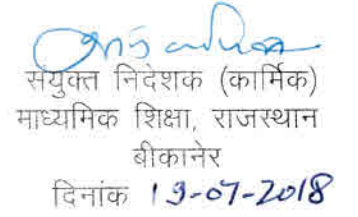 संयुक्त निदेशक (कार्मिक)
माध्यमिक शिक्षा, राजस्थान
बीकानेर
दिनांक 13-07-2018